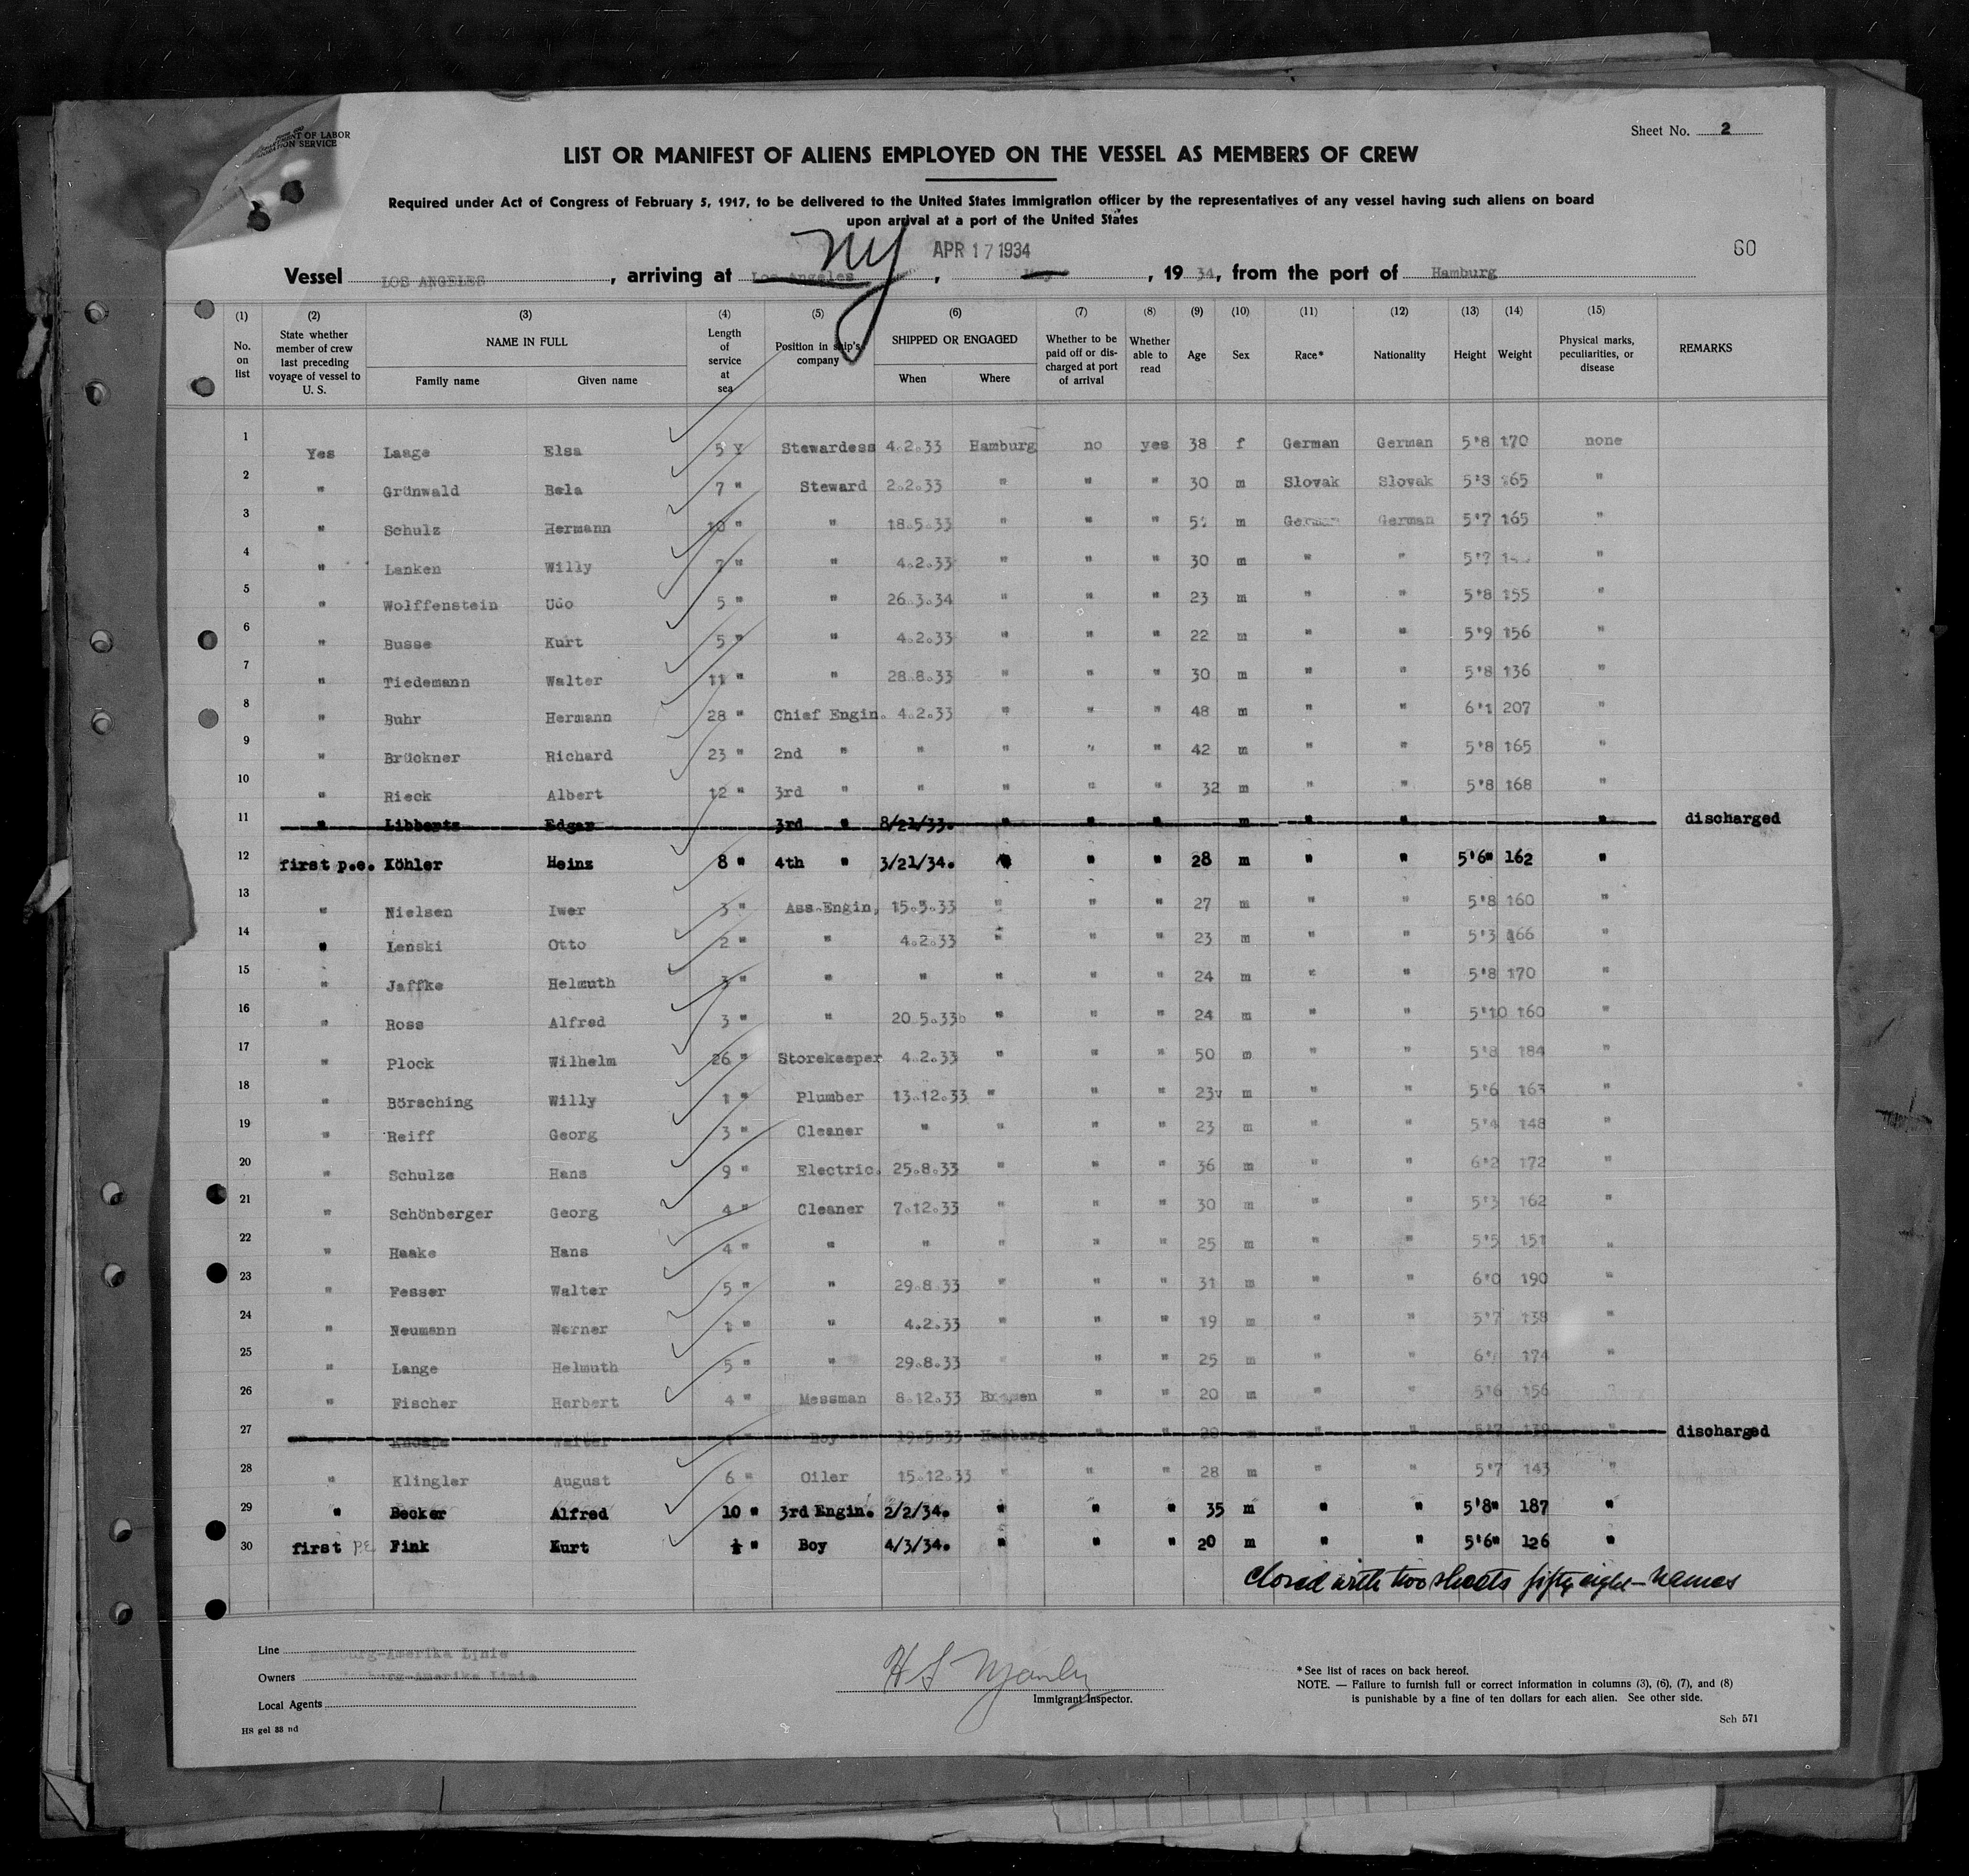 OF LABOR
SERVICE
Sheet No. 2
LIST OR MANIFEST OF ALIENS EMPLOYED ON THE VESSEL AS MEMBERS OF CREW
Required under Act of Congress of February 5, 1917, to be delivered to the United States immigration officer by the representatives of any vessel having such aliens on board
upon arrival at a port of the United States
NY APR 17 1934 60
Vessel LOS ANGELES, arriving at Los Angeles, May, 19 34, from the port of Hamburg
(1) (2) (3) (4) (5) (6) (7) (8) (9) (10) (11) (12) (13) (14) (15)
No. on list State whether member of crew last preceding voyage of vessel to U. S. NAME IN FULL Family name Given name Length of service at sea Position in ship's company SHIPPED OR ENGAGED When Where Whether to be paid off or discharged at port of arrival Whether able to read Age Sex Race* Nationality Height Weight Physical marks, peculiarities, or disease REMARKS
1 Yes Laage Elsa 5 Y Stewardess 4.2.33 Hamburg no yes 38 f German German 5'8 170 none
2 " Grünwald Bela 7 " Steward 2.2.33 " " " 30 m Slovak Slovak 5'3 165 "
3 " Schulz Hermann 10 " " 18.5.33 " " " m German German 5'7 165 "
4 " Lanken Willy 7 " " 4.2.33 " " " 30 m " " 5'7 "
5 " Wolffenstein Udo 5 " " 26.3.34 " " " 23 m " " 5'8 155 "
6 " Busse Kurt 5 " " 4.2.33 " " " 22 m " " 5'9 156 "
7 " Tiedemann Walter 11 " " 28.8.33 " " " 30 m " " 5'8 136 "
8 " Buhr Hermann 28 " Chief Engin. 4.2.33 " " " 48 m " " 6'1 207 "
9 " Brückner Richard 23 " 2nd " " " " " 42 m " " 5'8 165 "
10 " Rieck Albert 12 " 3rd " " " " " 32 m " " 5'8 168 "
11 " Libbertz Edgar 3rd " 8/21/33. " " " m " " " discharged
12 first p.e. Köhler Heinz 8 " 4th " 3/21/34. " " " 28 m " " 5'6" 162 "
13 " Nielsen Iwer 3 " Ass.Engin, 15.5.33 " " " 27 m " " 5'8 160 "
14 " Lenski Otto 2 " " 4.2.33 " " " 23 m " " 5'3 166 "
15 " Jaffke Helmuth 3 " " " " " " 24 m " " 5'8 170 "
16 " Ross Alfred 3 " " 20 5.33 " " " 24 m " " 5'10 160 "
17 " Plock Wilhelm 26 " Storekeeper 4.2.33 " " " 50 m " " 5'8 184 "
18 " Börsching Willy 1 " Plumber 13.12.33 " " " 23v m " " 5'6 163 "
19 " Reiff Georg 3 " Cleaner " " " " 23 m " " 5'4 148 "
20 " Schulze Hans 9 " Electric. 25.8.33 " " " 36 m " " 6'2 172 "
21 " Schönberger Georg 4 " Cleaner 7.12.33 " " " 30 m " " 5'3 162 "
22 " Haake Hans 4 " " " " " " 25 m " " 5'5 151 "
23 " Fesser Walter 5 " " 29.8.33 " " " 31 m " " 6'0 190 "
24 " Neumann Werner 1 " " 4.2.33 " " " 19 m " " 5'7 138 "
25 " Lange Helmuth 5 " " 29.8.33 " " " 25 m " " 174 "
26 " Fischer Herbert 4 " Messman 8.12.33 Bremen " " 20 m " " 5'6 156 "
27 Walter 1 " Boy 19.5.33 Hamburg " " 20 m " " 5'7 139 " discharged
28 " Klingler August 6 " Oiler 15.12.33 " " " 28 m " " 5'7 143 "
29 " Becker Alfred 10 " 3rd Engin. 2/2/34. " " " 35 m " " 5'8" 187 "
30 first P.E. Fink Kurt ½ " Boy 4/3/34. " " " 20 m " " 5'6" 126 "
Closed with two sheets fifty eight - names
Line Hamburg-Amerika Linie
Owners Hamburg-Amerika Linie
Local Agents
Immigrant Inspector.
*See list of races on back hereof.
NOTE. — Failure to furnish full or correct information in columns (3), (6), (7), and (8)
is punishable by a fine of ten dollars for each alien. See other side.
HS gel 33 nd
Sch 571